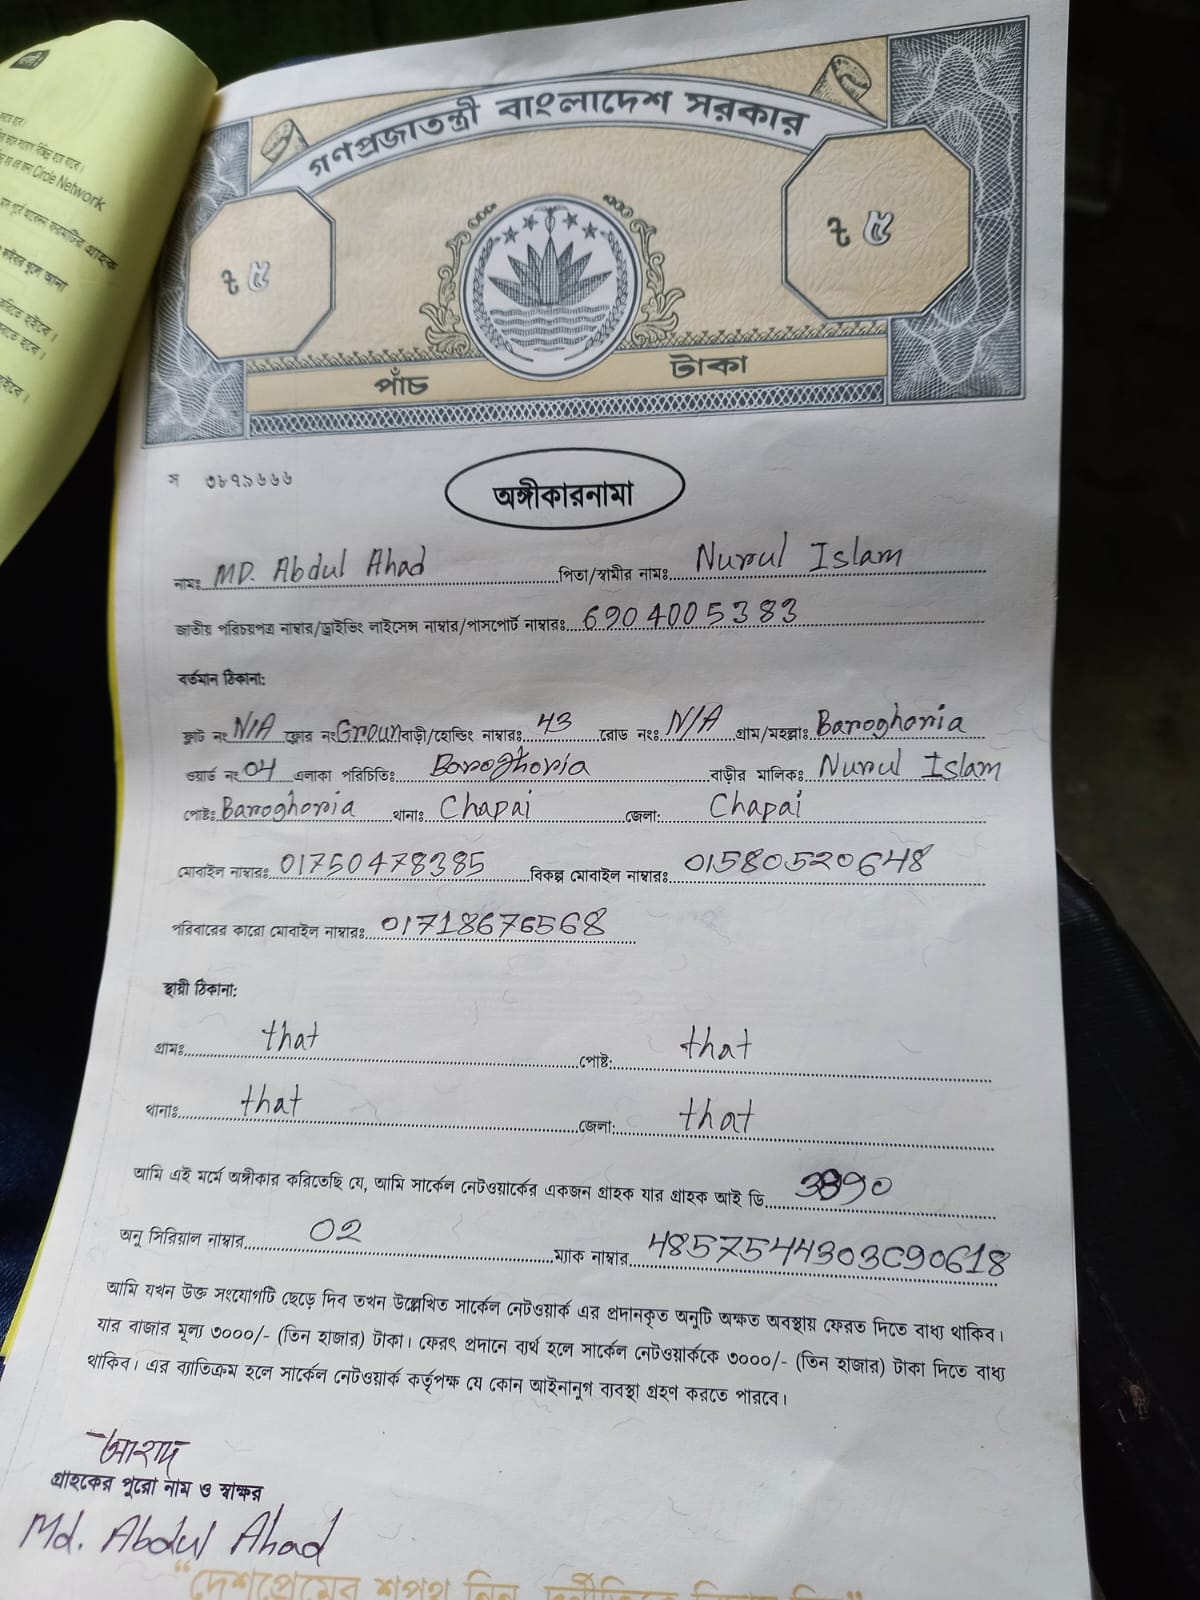 গণপ্রজাতন্ত্রী বাংলাদেশ সরকার
৳ ৫
৳ ৫
পাঁচ টাকা
স ৩৮৭১৬৬৬
অঙ্গীকারনামা
নামঃ MD. Abdul Ahad পিতা/স্বামীর নামঃ Nurul Islam
জাতীয় পরিচয়পত্র নাম্বার/ড্রাইভিং লাইসেন্স নাম্বার/পাসপোর্ট নাম্বারঃ 6904005383
বর্তমান ঠিকানা:
ফ্লাট নং N/A ফ্লোর নং Groun বাড়ী/হোল্ডিং নাম্বারঃ 43 রোড নংঃ N/A গ্রাম/মহল্লাঃ Baroghoria
ওয়ার্ড নং 04 এলাকা পরিচিতিঃ Baroghoria বাড়ীর মালিকঃ Nurul Islam
পোষ্টঃ Baroghoria থানাঃ Chapai জেলা: Chapai
মোবাইল নাম্বারঃ 01750478385 বিকল্প মোবাইল নাম্বারঃ 01580520648
পরিবারের কারো মোবাইল নাম্বারঃ 01718676568
স্থায়ী ঠিকানা:
গ্রামঃ that পোষ্ট: that
থানাঃ that জেলা: that
আমি এই মর্মে অঙ্গীকার করিতেছি যে, আমি সার্কেল নেটওয়ার্কের একজন গ্রাহক যার গ্রাহক আই ডি 3890
অনু সিরিয়াল নাম্বার 02 ম্যাক নাম্বার 4857544303C90618
আমি যখন উক্ত সংযোগটি ছেড়ে দিব তখন উল্লেখিত সার্কেল নেটওয়ার্ক এর প্রদানকৃত অনুটি অক্ষত অবস্থায় ফেরত দিতে বাধ্য থাকিব।
যার বাজার মূল্য ৩০০০/- (তিন হাজার) টাকা। ফেরৎ প্রদানে ব্যর্থ হলে সার্কেল নেটওয়ার্ককে ৩০০০/- (তিন হাজার) টাকা দিতে বাধ্য
থাকিব। এর ব্যাতিক্রম হলে সার্কেল নেটওয়ার্ক কর্তৃপক্ষ যে কোন আইনানুগ ব্যবস্থা গ্রহণ করতে পারবে।
আহাদ
গ্রাহকের পুরো নাম ও স্বাক্ষর
Md. Abdul Ahad
"দেশপ্রেমের শপথ নিন
Circle Network
গ্রাহক